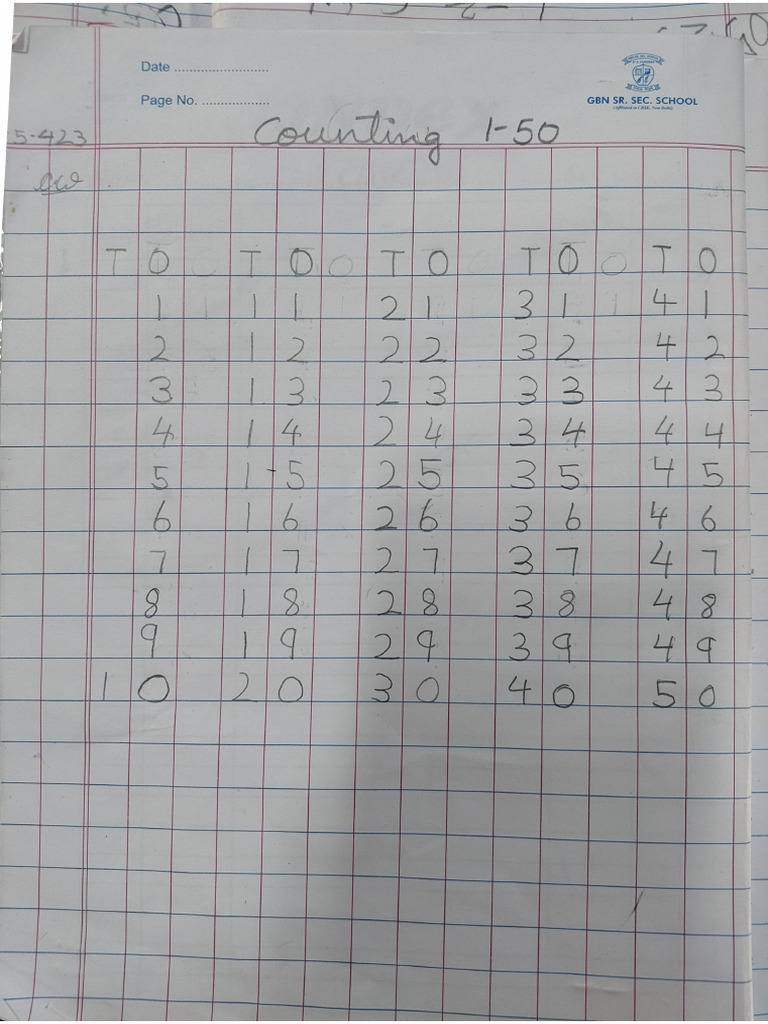 Date ..........................
GBN SR. SEC. SCHOOL
(Affiliated to CBSE, New Delhi)
Page No. ...................
5-423
Counting 1-50
cw
T O T O T O T O T O
1 1 1 2 1 3 1 4 1
2 1 2 2 2 3 2 4 2
3 1 3 2 3 3 3 4 3
4 1 4 2 4 3 4 4 4
5 1 5 2 5 3 5 4 5
6 1 6 2 6 3 6 4 6
7 1 7 2 7 3 7 4 7
8 1 8 2 8 3 8 4 8
9 1 9 2 9 3 9 4 9
1 0 2 0 3 0 4 0 5 0